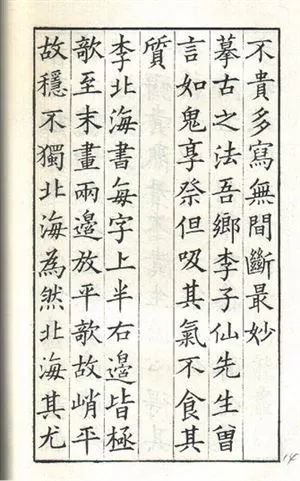 不貴多寫無間斷最妙
摹古之法吾鄉李子仙先生曾
言如鬼享祭但吸其氣不食其
質
李北海書每字上半右邊皆極
欹至末畫兩邊放平欹故峭平
故穩不獨北海為然北海其尤
14